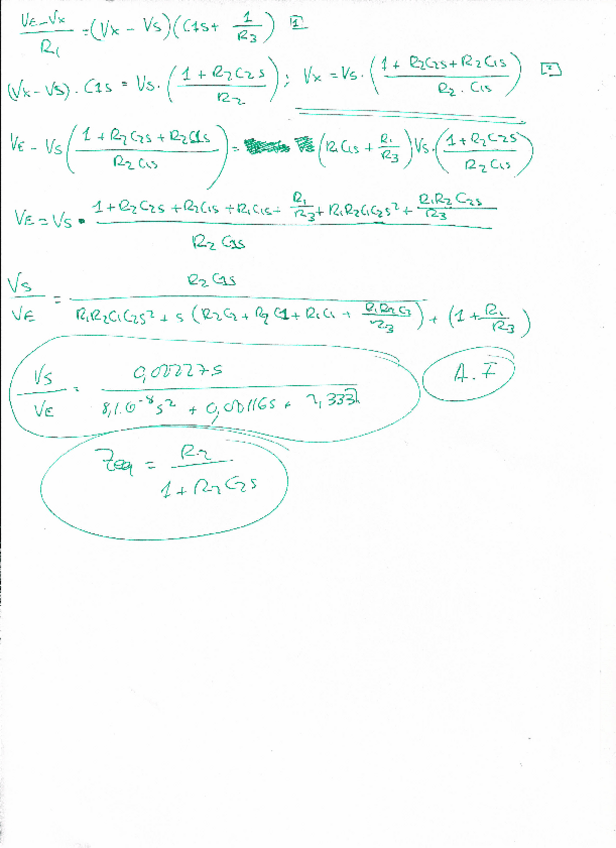 (VE - Vx)/R1 = (Vx - Vs)(C1s + 1/R3) [1]
(Vx - Vs) . C1s = Vs. ((1 + R2C2s)/R2) ; Vx = Vs . ((1 + R2C2s + R2C1s)/(R2 . C1s)) [2]
VE - Vs((1 + R2C2s + R2C1s)/(R2C1s)) = (R1C1s + R1/R3) Vs. ((1 + R2C2s)/(R2C1s))
VE = Vs • (1 + R2C2s + R2C1s + R1C1s + R1/R3 + R1R2C1C2s² + R1R2C2s/R3)/(R2C1s)
Vs/VE = (R2C1s)/(R1R2C1C2s² + s (R2C2 + R2C1 + R1C1 + R1R2C2/R3) + (1 + R1/R3))
A.F
Zeq = R2/(1 + R2C2s)